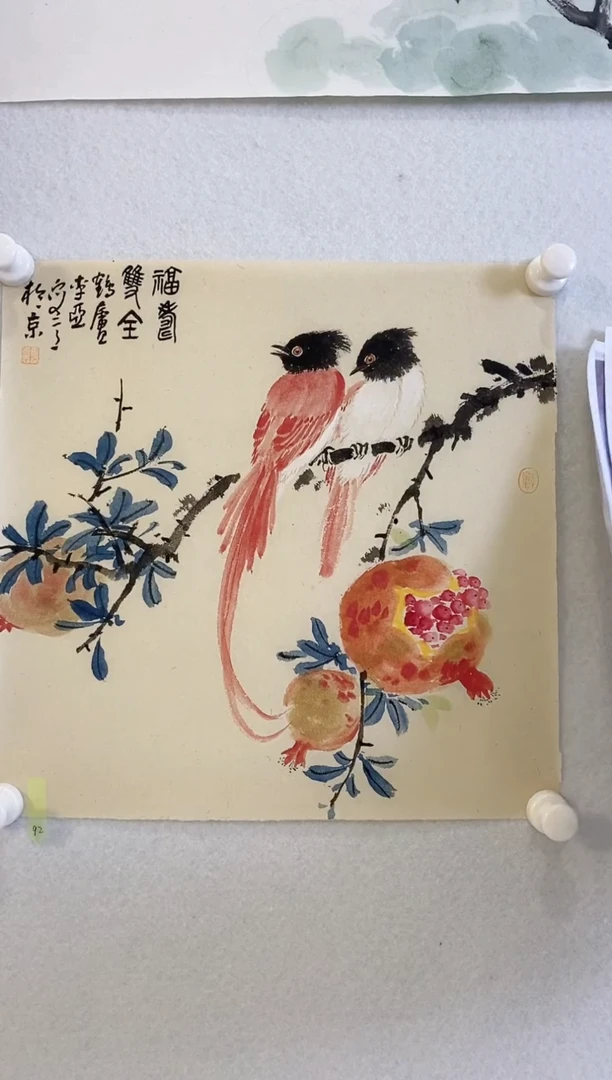 福壽
雙全
鶴廬
李亞
於京
92